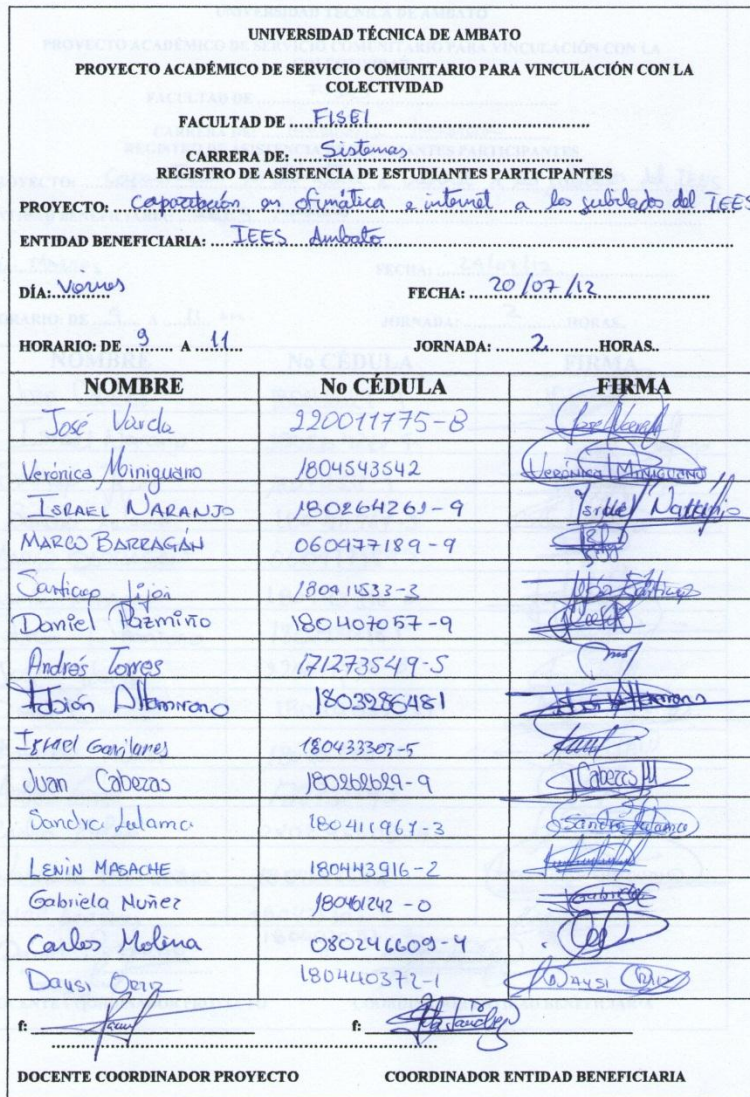 UNIVERSIDAD TÉCNICA DE AMBATO
PROYECTO ACADÉMICO DE SERVICIO COMUNITARIO PARA VINCULACIÓN CON LA
COLECTIVIDAD
FACULTAD DE ..... FISEI
CARRERA DE: ..... Sistemas
REGISTRO DE ASISTENCIA DE ESTUDIANTES PARTICIPANTES
PROYECTO: Capacitación en ofimática e internet a los jubilados del IEES
ENTIDAD BENEFICIARIA: ..... IEES Ambato
DÍA: Viernes FECHA: 20/07/12
HORARIO: DE 9 A 11 JORNADA: 2 HORAS.
NOMBRE No CÉDULA FIRMA
José 220011775-8
Verónica Miniguano 1804543542 Verónica Miniguano
ISRAEL NARANJO 180264261-9 Israel Naranjo
MARCO BARRAGÁN 060477189-9
Santiago 180411533-3 Santiago
Daniel Pazmiño 180407057-9
Andrés Torres 171273549-5
Fabián Altamirano 180328648-1
Israel Gavilanes 180433303-5
Juan Cabezas 180262629-9 JCabezas
Sandra Lulamc 180411967-3 Sandra
LENIN MASACHE 180443916-2
Gabriela Nuñez 180461242-0 Gabriela
Carlos Molina 080246609-4
Daysi 180440372-1 DAYSI
f: f:
DOCENTE COORDINADOR PROYECTO COORDINADOR ENTIDAD BENEFICIARIA